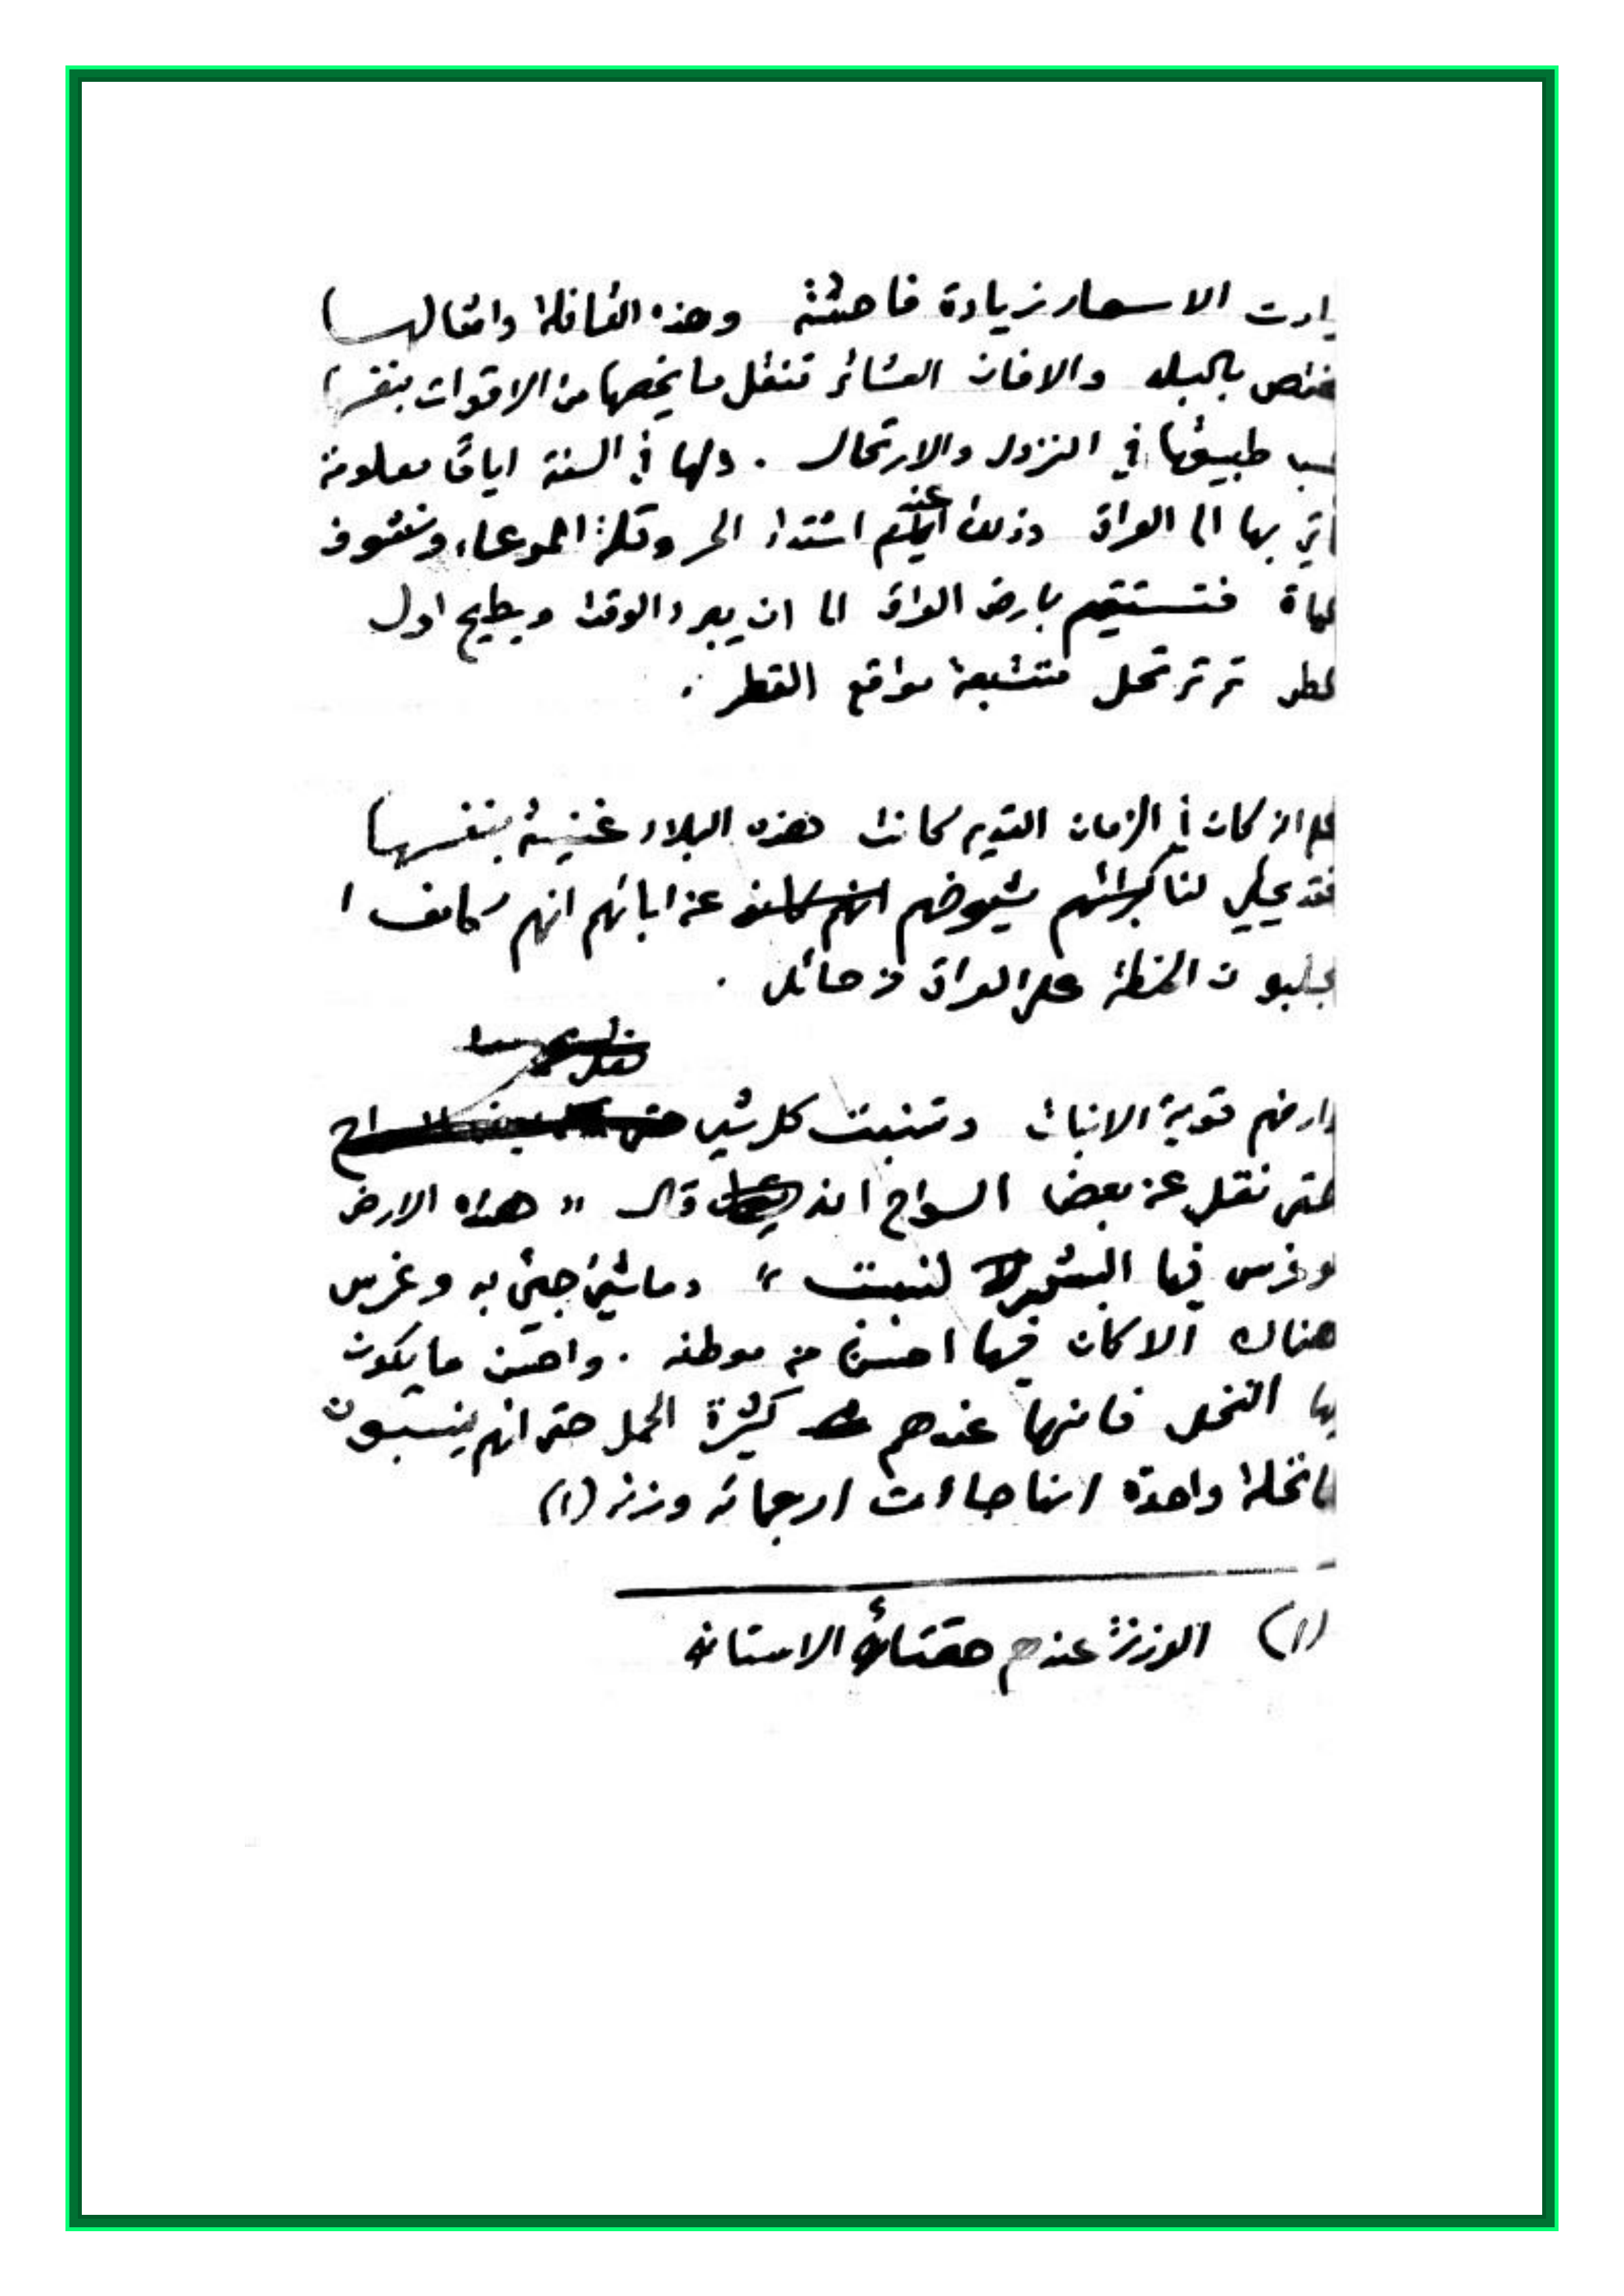 ادت الاسعار زيادة فاحشة وهذه القافلة وامثالها
ختص بالجبل والا فان العشائر تنقل ما يخصها من الاقوات بنفسها
سب طبيعتها في النزول والارتحال . ولها في السنة اياما معلومة
أتي بها الى العراق وذلك عند اشتداد الحر وقلة المرعاء ونشوف
لماة فتستقيم بارض العراق الى ان يبرد الوقت ويطيح اول
لمطر ثم ترتحل متتبعة مواقع القطر .
كان في الزمان القديم كانت هذه البلاد غنية بنفسها
فقد يحكي لنا شيوخهم عن ابائهم انهم كانوا
يجلبون الحنطة على العراق من حائل .
وارضهم قوية الانبات وتنبت كل شيء
حتى نقل عن بعض السواح انه قال " هذه الارض
لو غرس فيها البشر لنبت " وما شيئ جيئ به وغرس
هناك الا كان فيها احسن من موطنه . واحسن ما يكون
بها النخل فانها عندهم كثيرة الحمل حتى انهم ينسبون
نخلة واحدة انها جاءت اربعمائة وزنه (١)
(١) الوزنة عندهم حقتان الاستانه